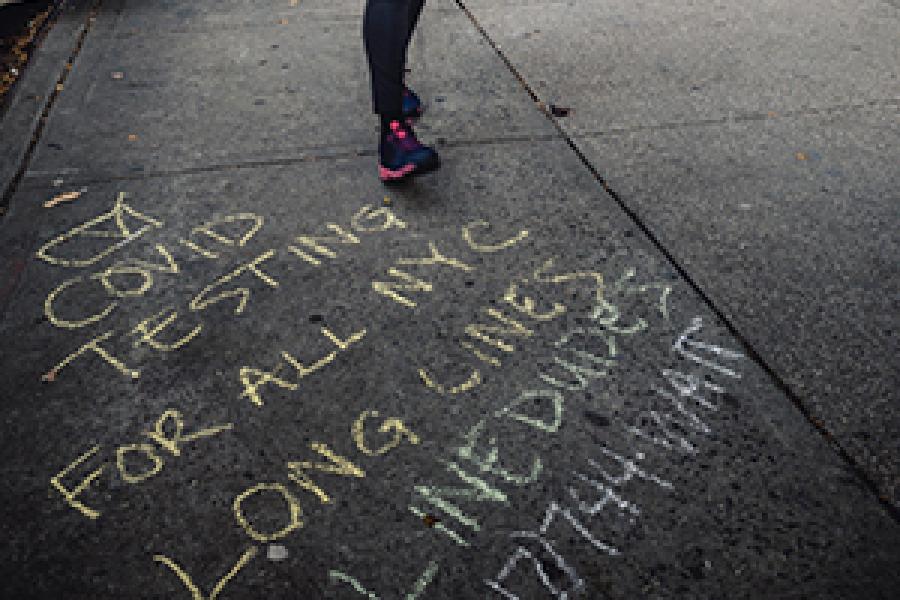 COVID
TESTING
FOR ALL NYC
LONG LINES
LINEDUDES